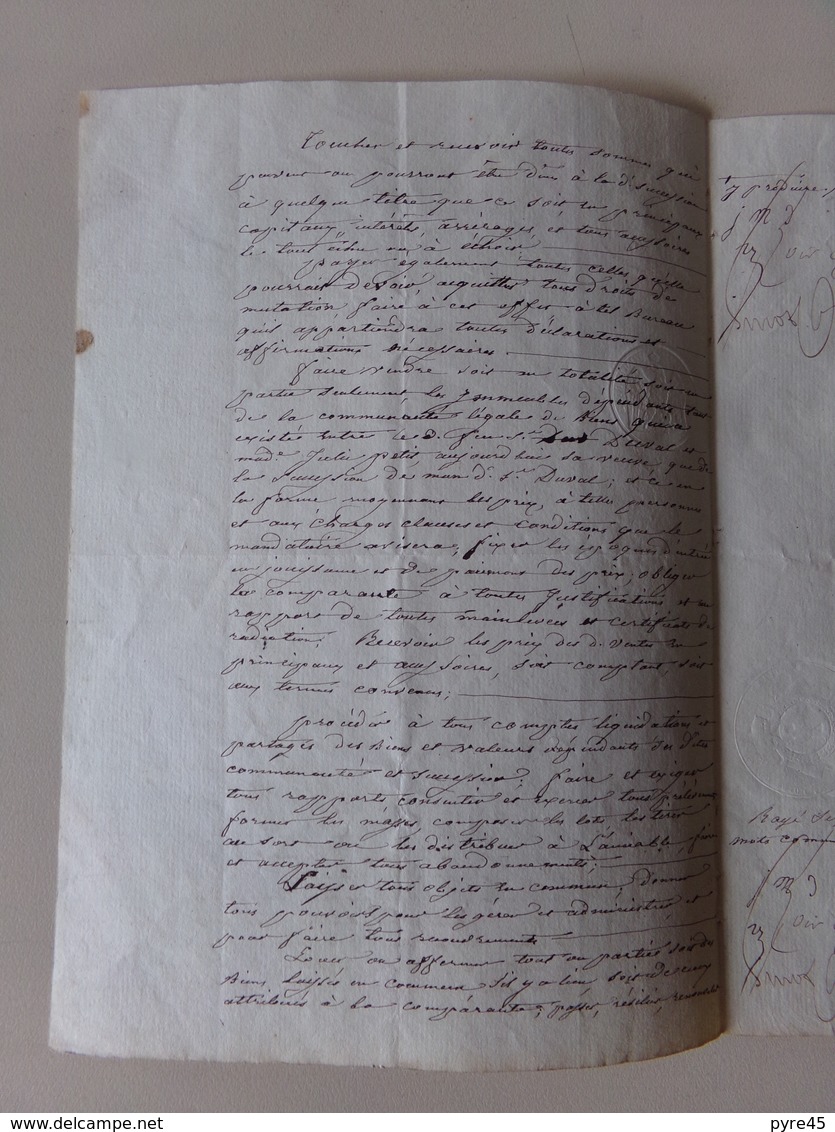 Toucher et recevoir toutes sommes qui
peuvent ou pourront être dues à la de succession
à quelque titre que ce soit en principaux
capitaux, intérêts, arrérages, et tous accessoires
le tout échu ou à échoir
payer également toutes celles qu'elle
pourrait devoir, acquitter tous droits de
mutation faire à cet effet à tels Bureau
qu'il appartiendra toutes déclarations et
affirmations nécessaires
faire vendre soit en totalité soit en
partie seulement les Immeubles dépendants tant
de la communauté légale de Biens qui a
existé entre le d. feu Sr. Duval et
made. Julie petit aujourd'hui sa veuve, que de
la succession de mon d. Sr. Duval; et ce en
la forme moyennant les prix, à telles personnes
et aux charges clauses et conditions que le
mandataire avisera, fixer les époques d'entrée
en jouissance et de paiement des prix; obliger
la comparante à toutes justifications et au
rapport de toutes mainlevées et certificats de
radiation; Recevoir les prix des d. ventes en
principaux et accessoires, soit comptant, soit
aux termes convenus;
procéder à tous comptes liquidations et
partages des Biens et valeurs dépendants des dites
communauté et succession; faire et exiger
tous rapports consentir et exercer tous prélèvements
former les masses composer les lots, les tirer
au sort ou les distribuer à l'amiable, faire
et accepter tous abandonnements;
Laisser tous objets en commun; donner
tous pouvoirs pour les gérer et administrer et
pour faire tous recouvrements
Louer ou affermer tout ou parties soit des
Biens laissés en commun s'il y a lieu soit de ceux
attribués à la comparante; passer, résilier, renouveler
y produire
j m d
Rayé
mots comme
j m d
delcampe.net
pyre45